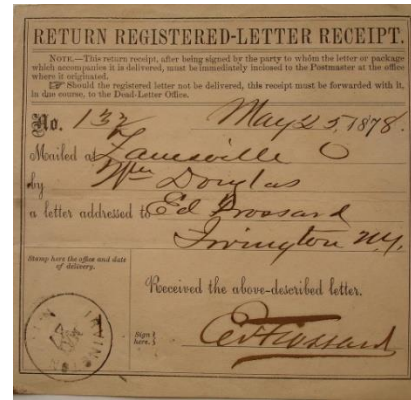 RETURN REGISTERED-LETTER RECEIPT.
NOTE.—This return receipt, after being signed by the party to whom the letter or package
which accompanies it is delivered, must be immediately inclosed to the Postmaster at the office
where it originated.
☞ Should the registered letter not be delivered, this receipt must be forwarded with it,
in due course, to the Dead-Letter Office.
No. 132 May 25, 1878.
Mailed at Zanesville O
by Wm Douglas
a letter addressed to Ed Frossard
Irvington N.Y.
Stamp here the office and date
of delivery.
Received the above-described letter.
Sign
here.
Ed Frossard